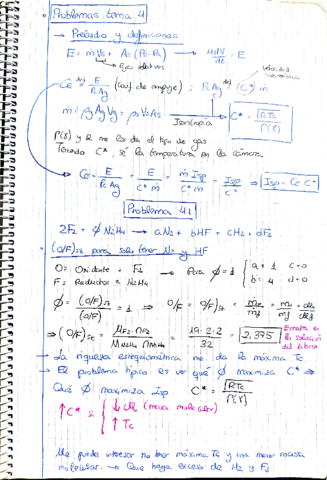 Problemas tema 4
→ Preludio y definiciones
E = ṁ Vs + As (Ps - Pa) → M dV/dt = E
Ejes relativos
C_E ≝ E / Pc Ag (coef. de empuje) ; Pc Ag ≝ C* ṁ
velocidad
ṁ = ρg Ag Vg = ρs Vs As
Isentropía
C* = √RTc / Γ(γ)
Γ(γ) y R me los da el tipo de gas
Teniendo C*, sé la temperatura en la cámara
C_E = E / Pc Ag = E / C* ṁ = ṁ Isp / C* ṁ = Isp / C* ⇒ Isp = C_E C*
Problema 4.1
2F2 + ϕ N2H4 → aN2 + bHF + cH2 + dF2
(O/F)st para solo tener N2 y HF
O = Oxidante = F2
F = Reductor = N2H4
→ Para ϕ = 1 { a = 1 c = 0
b = 4 d = 0
ϕ = (O/F)st / (O/F) = 1 ⇒ O/F = (O/F)st = ṁo / ṁf
⇒ (O/F)st = M_F2 · n_F2 / M_N2H4 n_N2H4 = 19 · 2 · 2 / 32 = 2,375
Errata en la solución del libro
→ La riqueza estequiométrica me da la máxima Tc
→ El problema típico es ver qué ϕ maximiza C* ⇒
Qué ϕ maximiza Isp C* = √RTc / Γ(γ)
↑ C* = { ↓ M (masa molecular)
↑ Tc
Me puede interesar no tener máxima Tc y una menor masa
molecular → Que haya exceso de H2 y F2